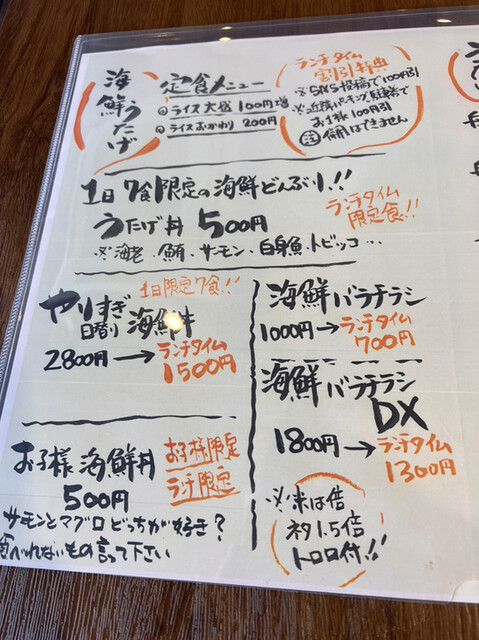 海鮮うたげ
定食メニュー
ライス大盛100円増
ライスおかわり 200円
ランチタイム
割引特典
※SNS投稿で100円引
※近隣パーキング駐車で
お1様100円引
注 併用はできません
1日7食限定の海鮮どんぶり!!
うたげ丼 500円
ランチタイム
限定食!!
※海老、鮪、サーモン、白身魚、トビッコ…
1日限定7食!!
やりすぎ
日替り海鮮丼
2800円→ランチタイム
1500円
海鮮バラチラシ
1000円→ランチタイム
700円
海鮮バラチラシ
DX
1800円→ランチタイム
1300円
※米は倍
ネタ1.5倍
トロロ付!!
お子様海鮮丼
500円
お子様限定
ランチ限定
サーモンとマグロどっちが好き?
食べれないもの言って下さい